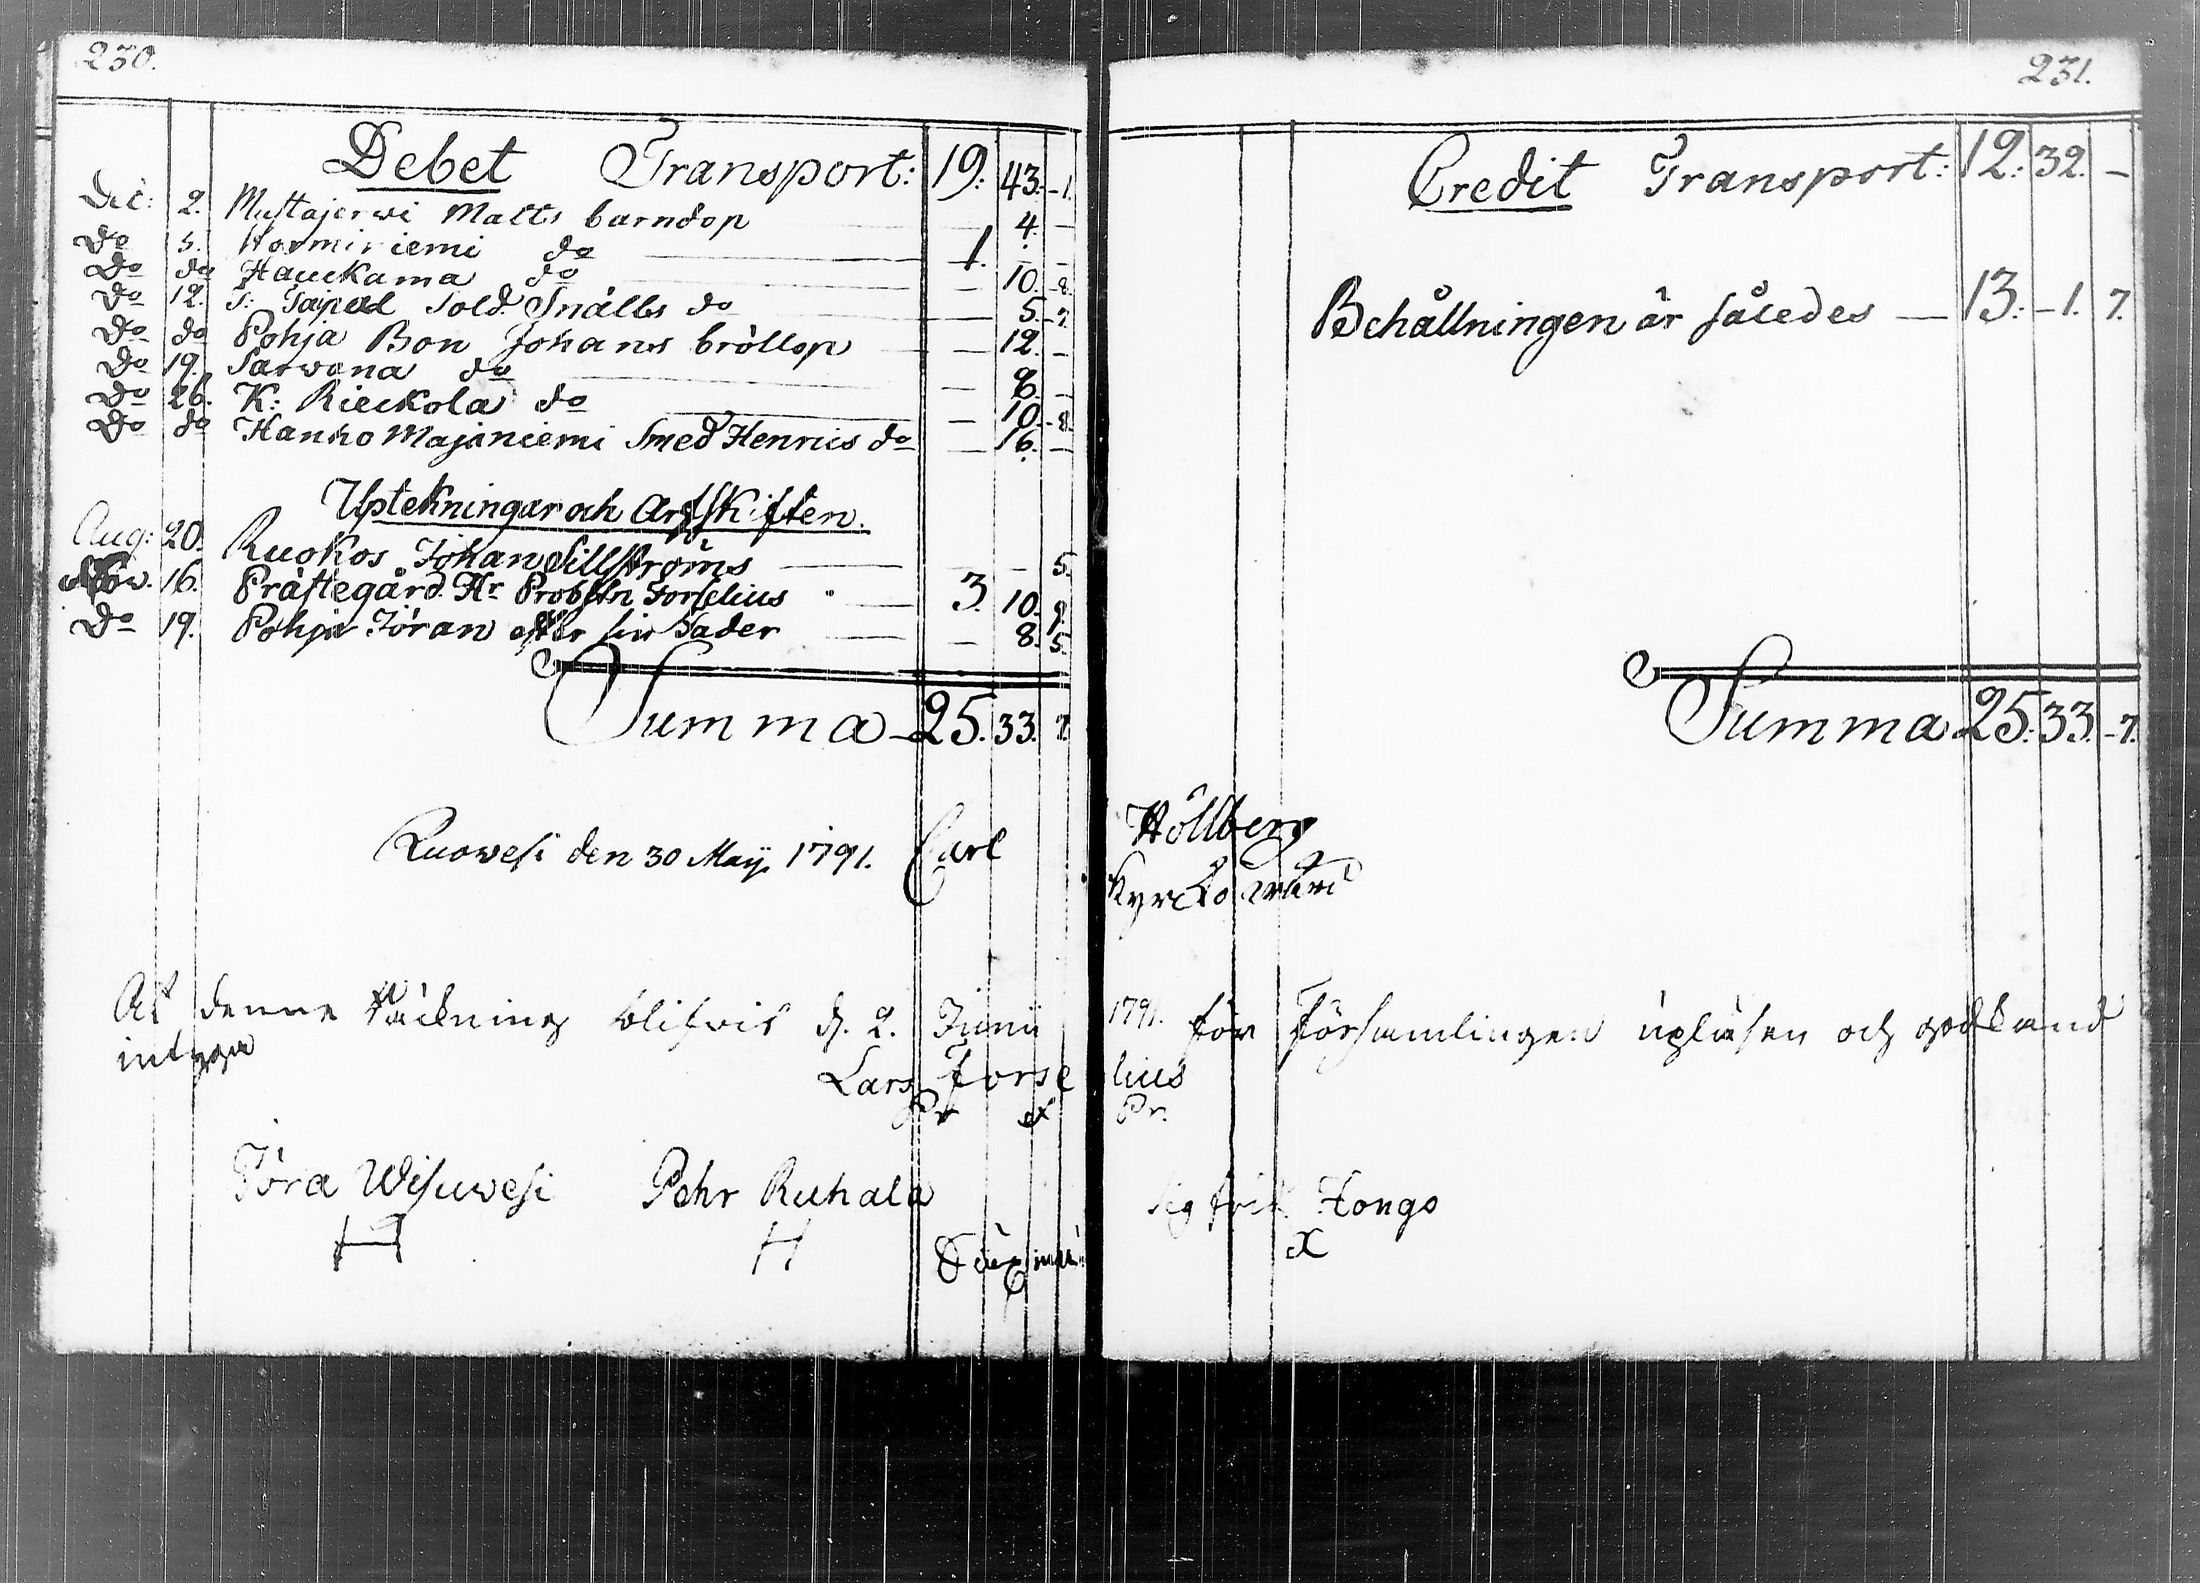 230.
Debet Transport: 19: 43. -1.
Dec: 2. Mustajerwi Matts barndop — 4. —
Do 5. Hormisiemi do — 1. — —
Do do Hauckama do — 10. 8.
Do 12. S: Taipal Sold. Snälls do — 5. 7.
Do do Pohja Bon Johans bröllop — 12. —
Do 19. Sarwana do — 8. —
Do 26. K: Rieckola do — 10. 8.
Do do Hanho Majaniemi Smed Henrics do — 16. —
Uptekningar och Arfskiften.
Aug: 20. Ruokos Johan Sillströms — — 5.
Nov. 16. Prästegård. Hr Probstn Forselius — 3. 10. 9.
Do 19. Pohja Jöran efter sin Fader — 8. 5.
Summa 25. 33. 7.
Ruowesi den 30 Maij 1791. Carl
At denne Räckning blifvit d. 2. Junii
intyga
Lars Forse
Pr et
Jöra Wisuwesi Pehr Ruhala
H H
231.
Credit Transport: 12: 32. —
Behållningen är således — 13: -1. 7.
Summa 25: 33. -7.
Höllberg
Kyrckowärd
1791. för Församlingen upläsen och godkänd
lius
Pr.
Sigfrid Hongo
X